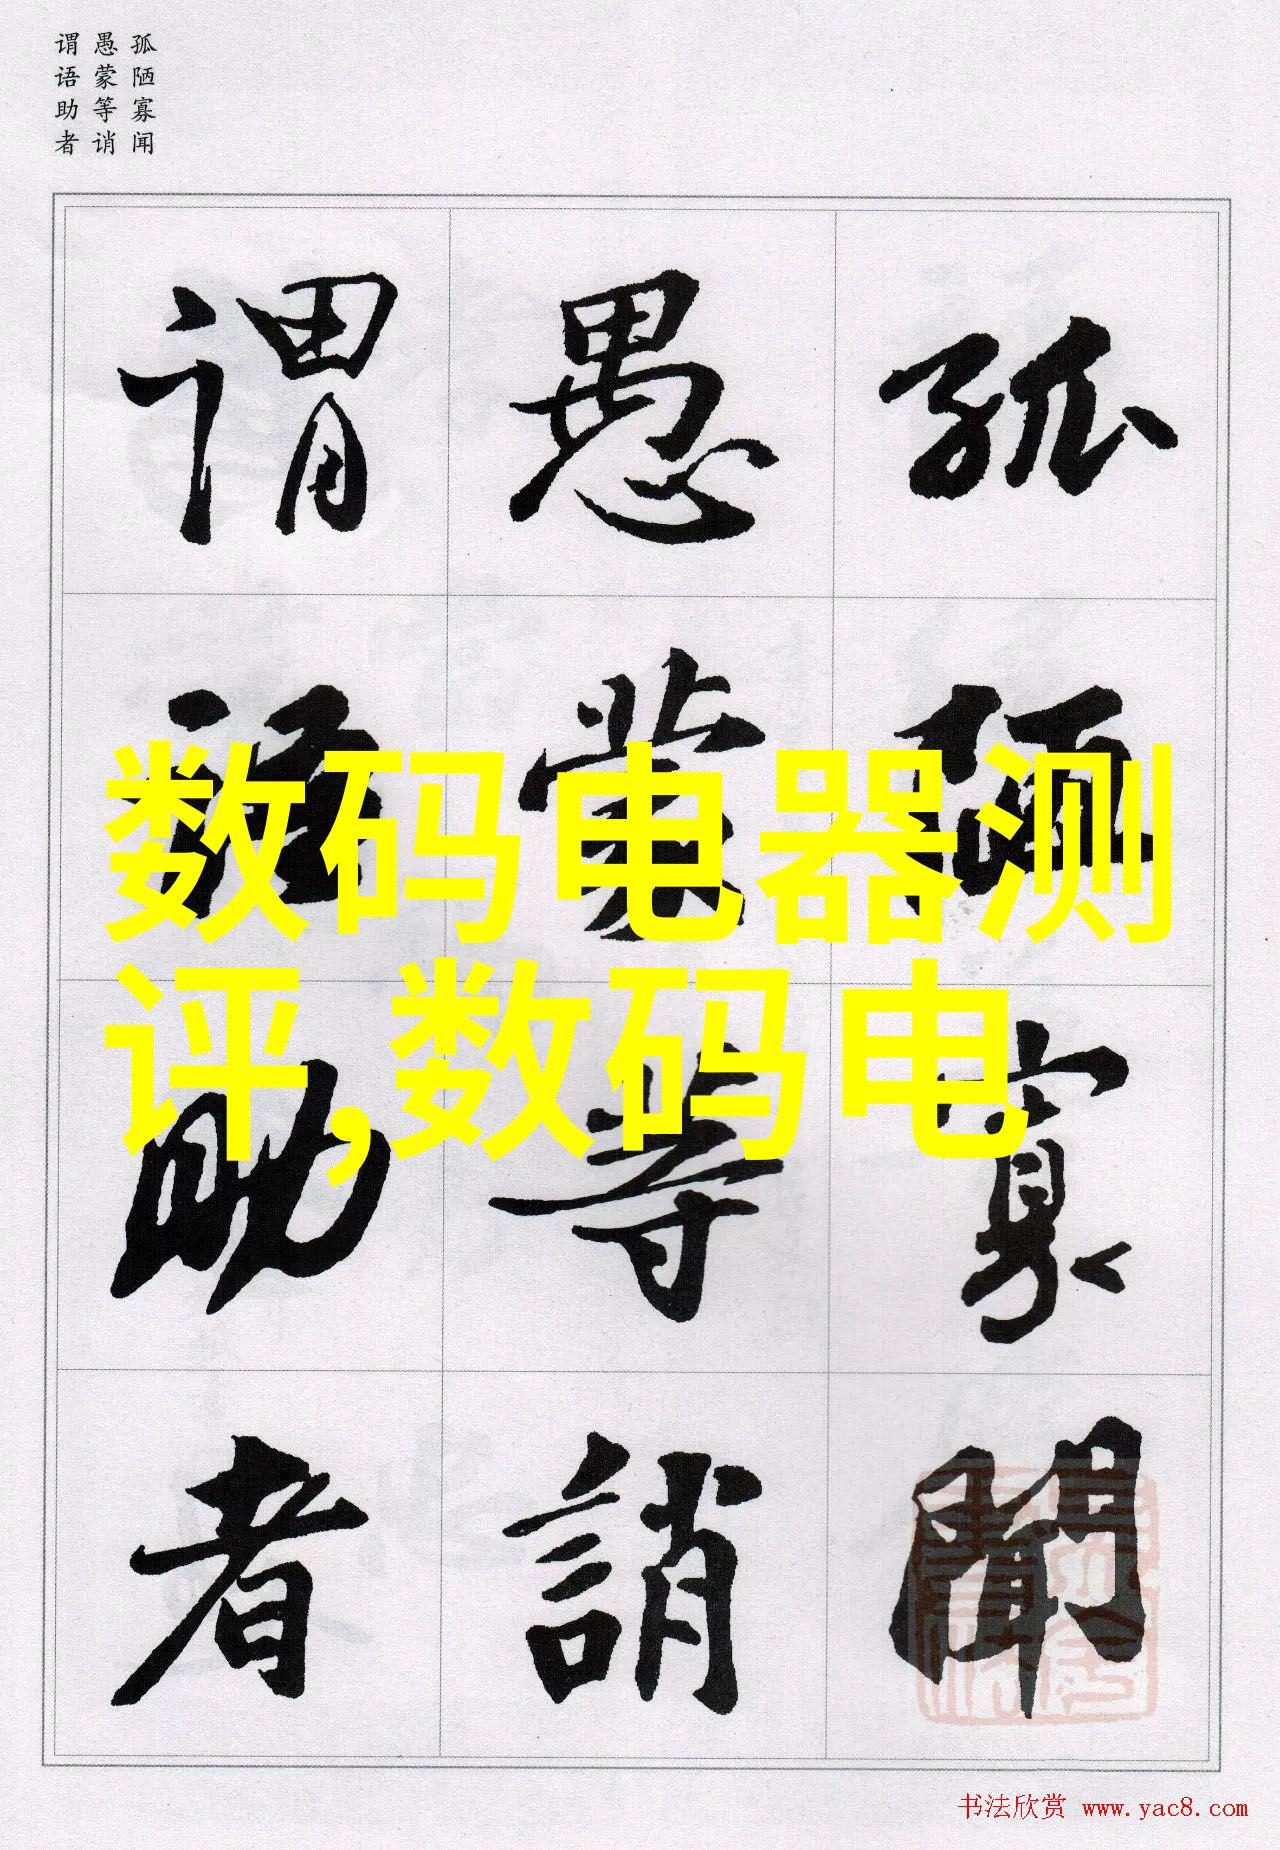 孤陋寡闻
愚蒙等诮
谓语助者
孤陋寡聞
愚蒙等誚
謂語助者
数码电器测
评,数码电
书法欣赏 www.yac8.com